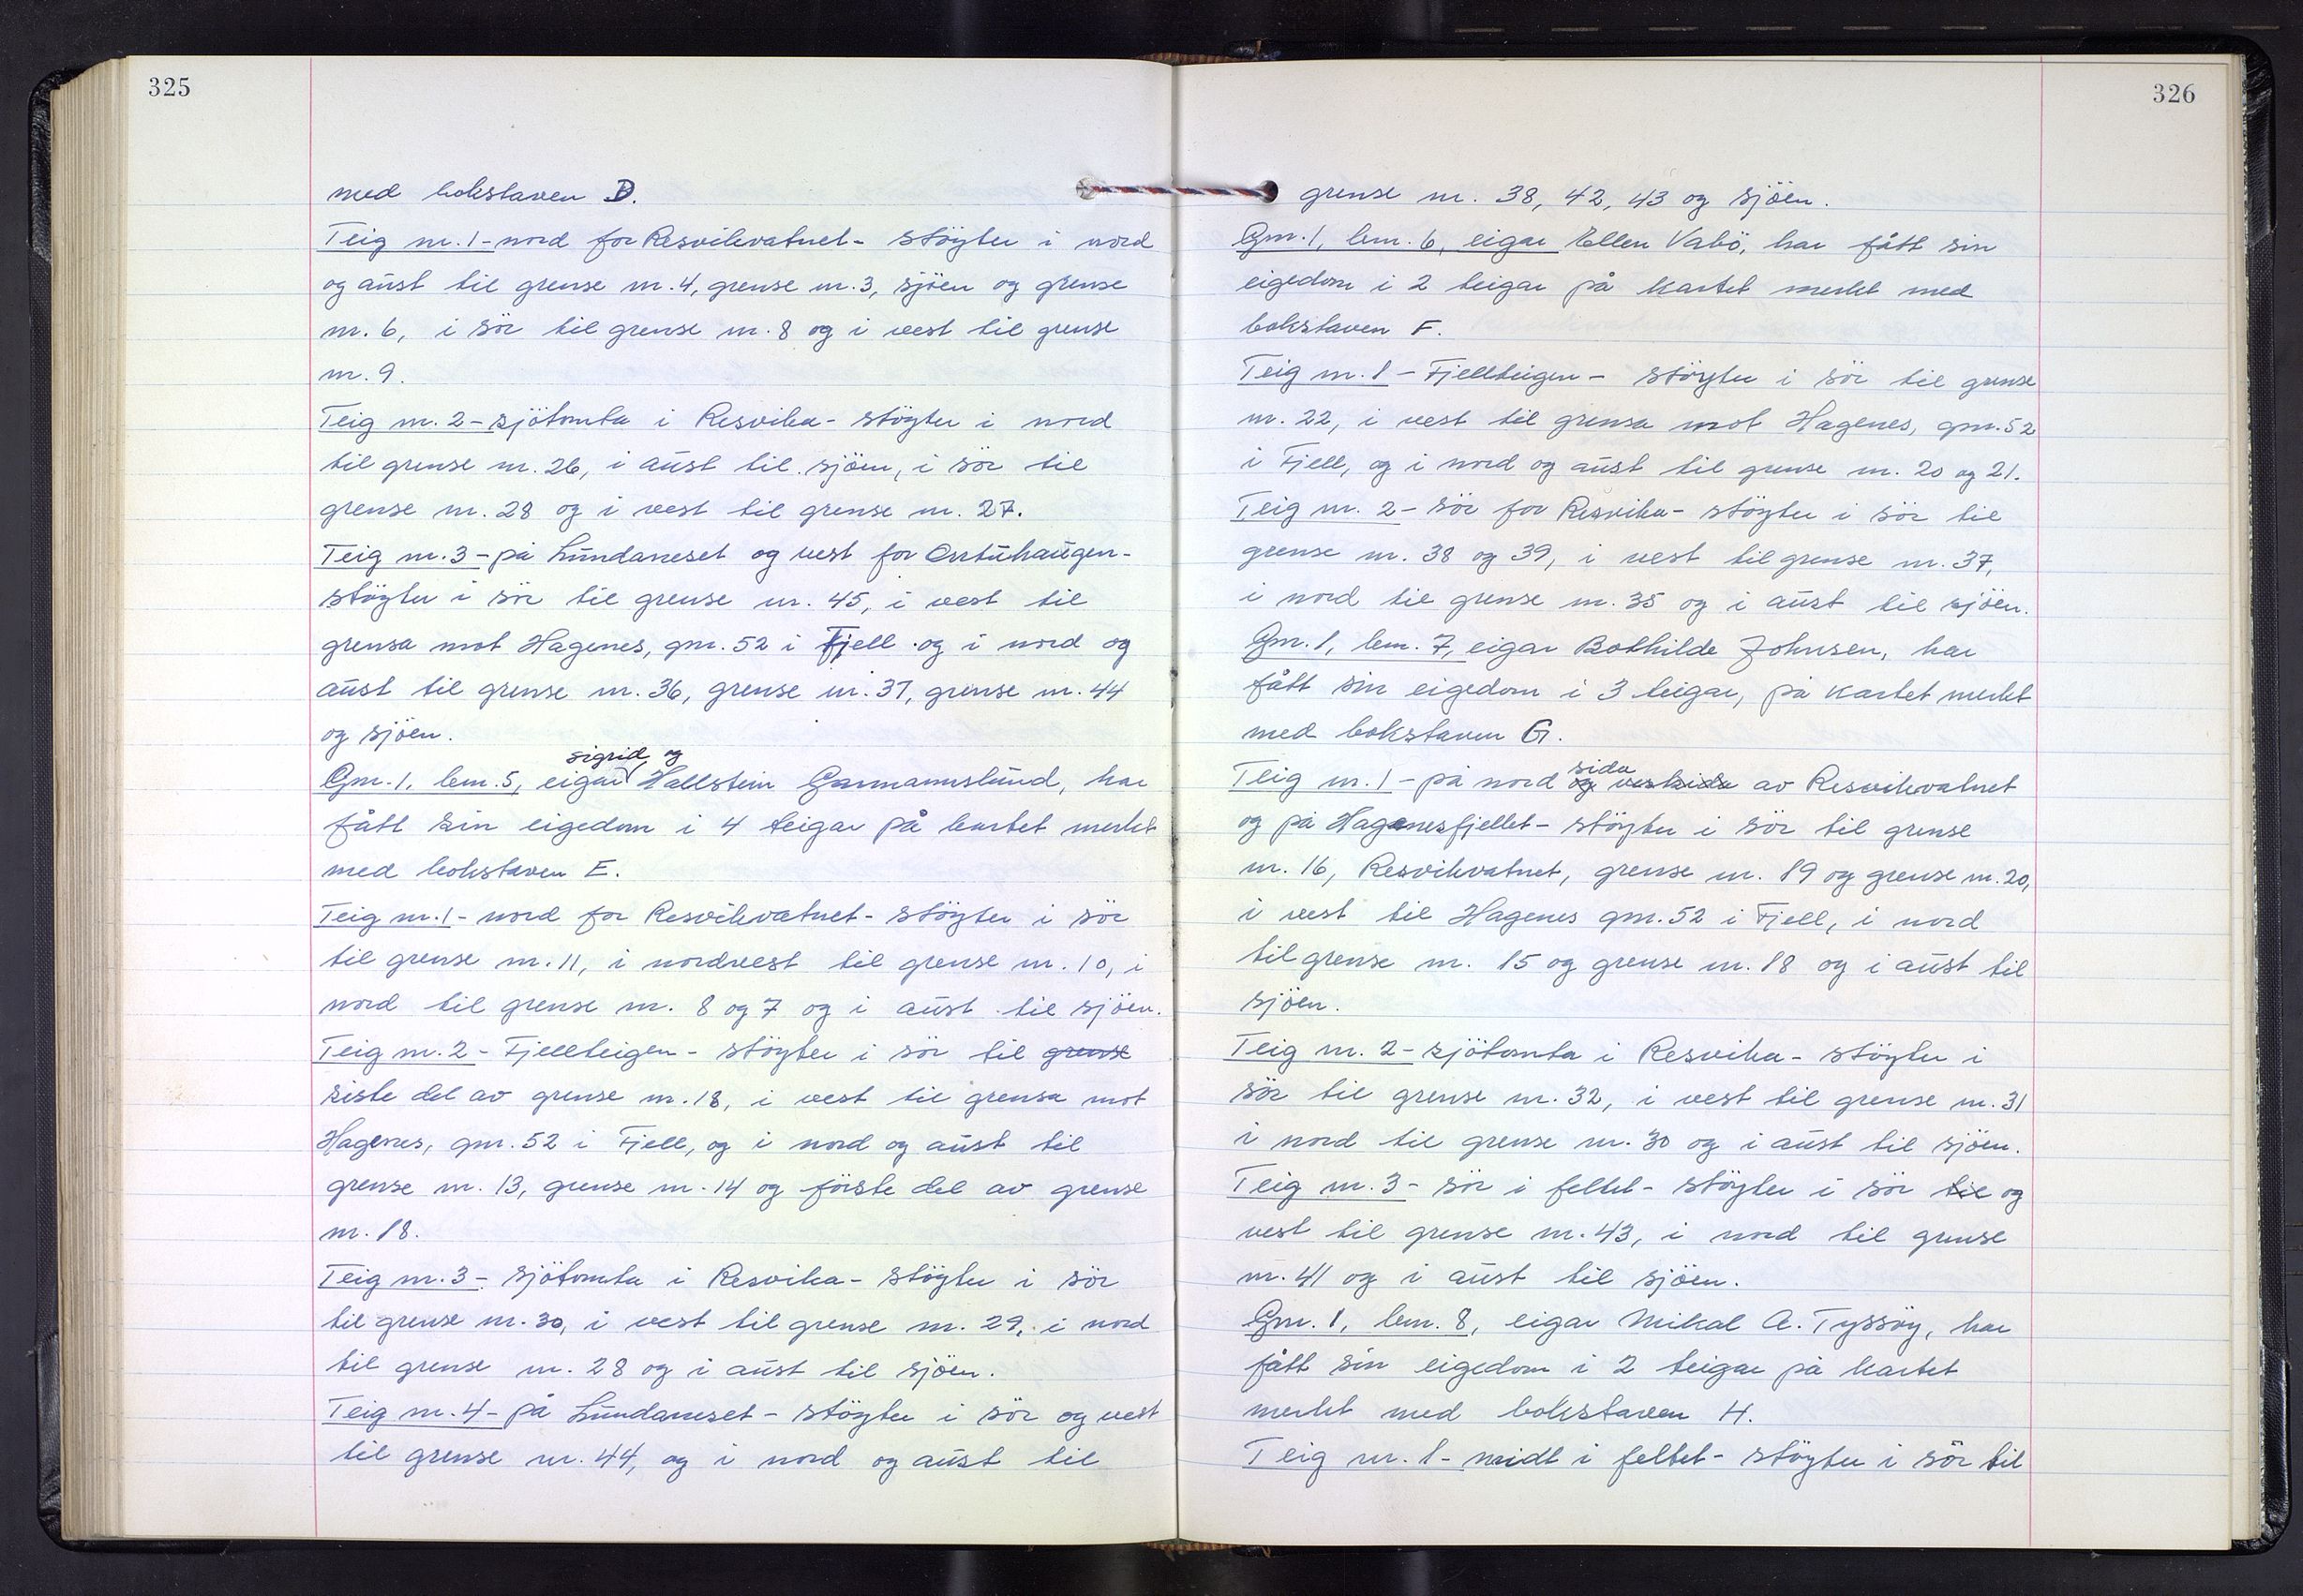 325
med bokstaven D.
Teig nr. 1 - nord for Resvikvatnet - støyter i nord
og aust til grense nr. 4, grense nr. 3, sjöen og grense
nr. 6, i sör til grense nr. 8 og i vest til grense
nr. 9.
Teig nr. 2 - sjötomta i Resvika - støyter i nord
til grense nr. 26, i aust til sjöen, i sör til
grense nr. 28 og i vest til grense nr. 27.
Teig nr. 3 - på Lundaneset og vest for Orrtuhaugen -
støyter i sör til grense nr. 45, i vest til
grensa mot Hagenes, gnr. 52 i Fjell og i nord og
aust til grense nr. 36, grense nr. 37, grense nr. 44
og sjöen.
Sigrid og
Gnr. 1, bnr. 5, eigar Hallstein Garmannslund, har
fått sin eigedom i 4 teigar på kartet merket
med bokstaven E.
Teig nr. 1 - nord for Resvikvatnet - støyter i sör
til grense nr. 11, i nordvest til grense nr. 10, i
nord til grense nr. 8 og 7 og i aust til sjöen.
Teig nr. 2 - Fjellteigen - støyter i sör til grense
siste del av grense nr. 18, i vest til grensa mot
Hagenes, gnr. 52 i Fjell, og i nord og aust til
grense nr. 13, grense nr. 14 og förste del av grense
nr. 18.
Teig nr. 3 - sjötomta i Resvika - støyter i sör
til grense nr. 30, i vest til grense nr. 29, i nord
til grense nr. 28 og i aust til sjöen.
Teig nr. 4 - på Lundaneset - støyter i sör og vest
til grense nr. 44, og i nord og aust til
326
grense nr. 38, 42, 43 og sjöen.
Gnr. 1, bnr. 6, eigar Ellen Vabö, har fått sin
eigedom i 2 teigar på kartet merket med
bokstaven F.
Teig nr. 1 - Fjellteigen - støyter i sör til grense
nr. 22, i vest til grensa mot Hagenes, gnr. 52
i Fjell, og i nord og aust til grense nr. 20 og 21.
Teig nr. 2 - sör for Resvika - støyter i sör til
grense nr. 38 og 39, i vest til grense nr. 37,
i nord til grense nr. 35 og i aust til sjöen.
Gnr. 1, bnr. 7, eigar Bothilde Johnsen, har
fått sin eigedom i 3 teigar, på kartet merket
med bokstaven G.
sida
Teig nr. 1 - på nord og vestsida av Resvikvatnet
og på Hagenesfjellet - støyter i sör til grense
nr. 16, Resvikvatnet, grense nr. 19 og grense nr. 20,
i vest til Hagenes gnr. 52 i Fjell, i nord
til grense nr. 15 og grense nr. 18 og i aust til
sjöen.
Teig nr. 2 - sjötomta i Resvika - støyter i
sör til grense nr. 32, i vest til grense nr. 31
i nord til grense nr. 30 og i aust til sjöen.
Teig nr. 3 - sör i feltet - støyter i sör til og
vest til grense nr. 43, i nord til grense
nr. 41 og i aust til sjöen.
Gnr. 1, bnr. 8, eigar Mikal A. Tyssöy, har
fått sin eigedom i 2 teigar på kartet
merket med bokstaven H.
Teig nr. 1 - midt i feltet - støyter i sör til